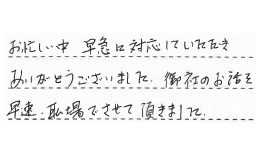 お忙しい中 早急に対応していただき
ありがとうございました。御社のお話を
早速、転場でさせて頂きました。